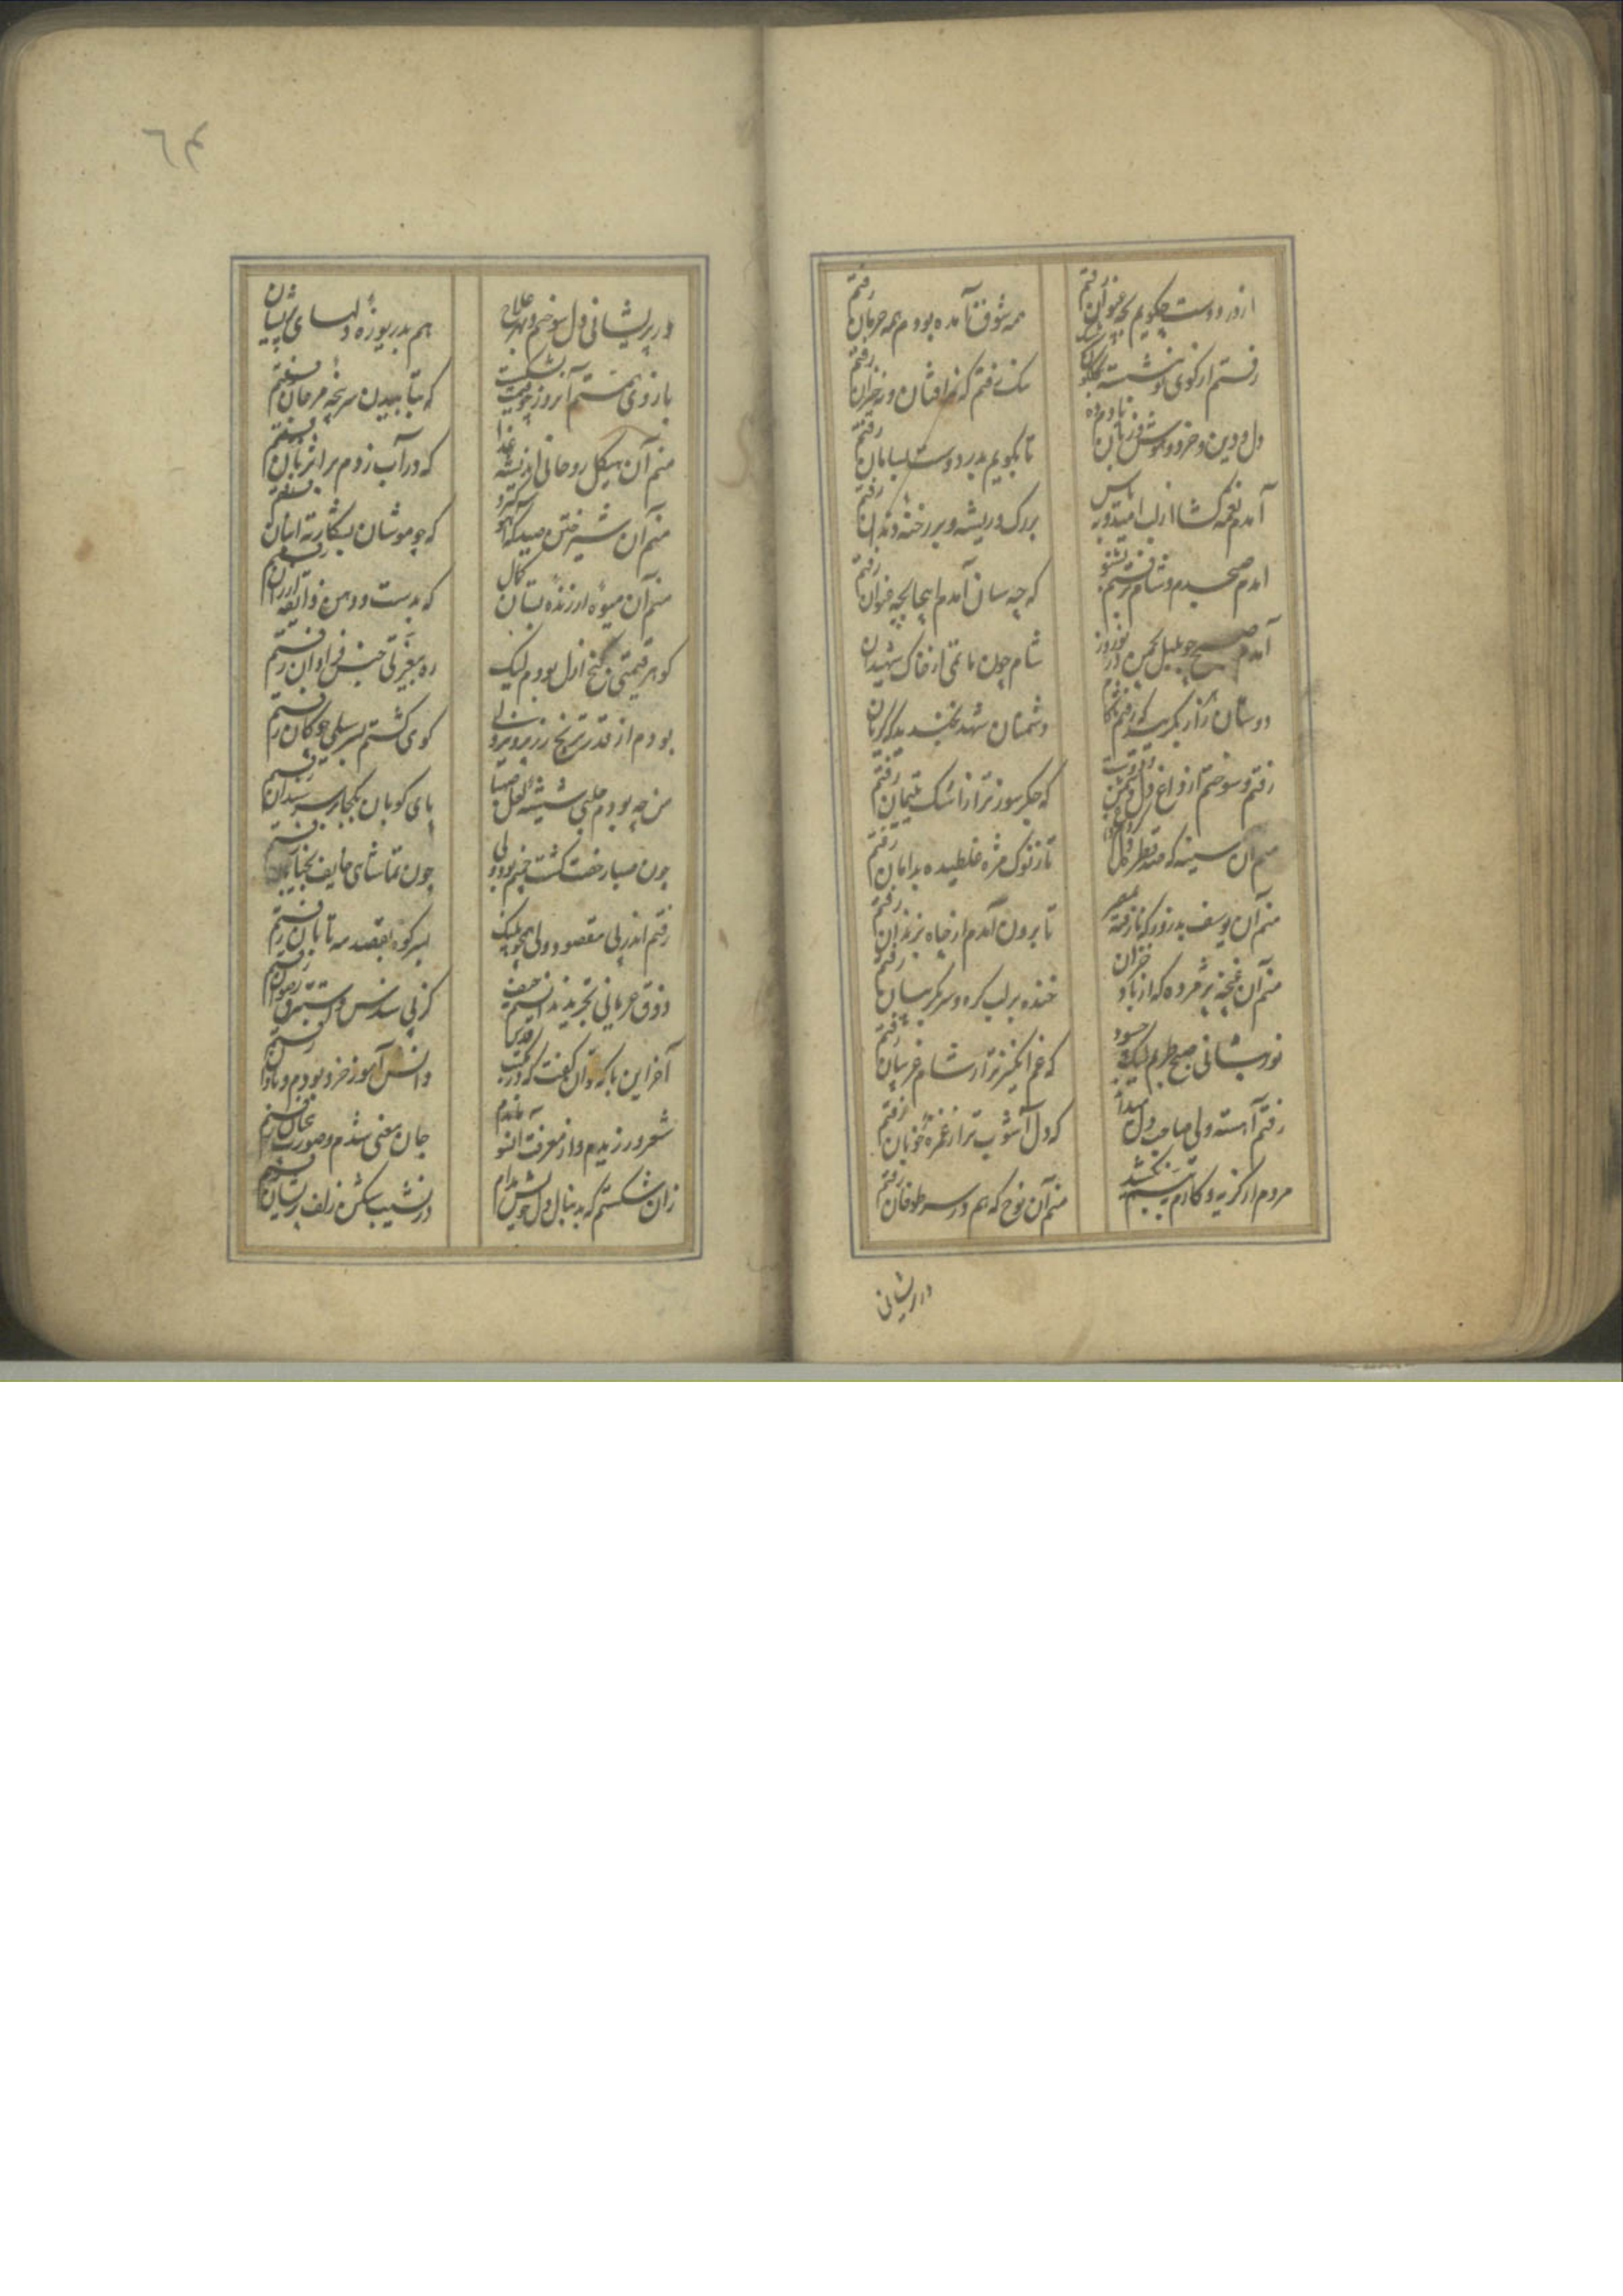 از در دوست چگویم بچه عنوان رفتم
همه شوق آمده بودم همه حرمان رفتم
رفتم از کوی تو
دل و دین و خرد و هوش و زبان
تا بگویم بدر دوست بسامان رفتم
آمدم نغمه گشا از لب امید و به یاس
بر رگ و ریشه و بر رخنه دندان رفتم
آمدم صبحدم و شام رفتم بشنو
که چه سان آمدم اینجا بچه عنوان رفتم
آمدم صبح چو بلبل بچمن در نوروز
شام چون ماتمی از خاک شهیدان
دوستان زار بگریید که رفتم
دشمنان شهد بخندید که گریان
رفتم و سوختم از داغ دل
که جگر سوزتر از اشک یتیمان رفتم
منم آن سینه که صد قطره
تا ز نوک مژه غلطیده بدامان رفتم
منم آن یوسف بد روز که نارفته بمصر
تا برون آمدم از چاه بزندان رفتم
منم آن غنچه پژمرده که از باد خزان
خنده بر لب گره و سر بگریبان رفتم
نور پیشانی صبح طربم لیک
که غم انگیزتر از شام غریبان رفتم
رفتم آهسته ولی صاحب دل میداند
که دل آشوب تر از غمزه خوبان رفتم
مردم از گریه و کارم
منم آن نوح که هم در سر طوفان رفتم
در پریشانی
٦٣
در پریشانی دل سوختم و بهر علاج
هم بدریوزه دلهای پریشان
بازوی همتم آنروز
که بتابیدن سر پنجه مرجان رفتم
منم آن هیکل روحانی اندیشه غذا
که در آب زدم بر اثر نان رفتم
منم آن شیر ختن صیدگه آهو
که چو موشان بشکار ته انبان رفتم
منم آن میوه ارزنده بستان کمال
که بدست و دهن و ذایقه ارزان رفتم
گوهر قیمتی گنج ازل بودم لیک
ره بیغیرتی جنس فراوان رفتم
بودم از قدر ترنج زر پرویز ولی
گوی گشتم بسر سیلی چوگان رفتم
من چه بودم حلبی شیشه لعل صهبا
پای کوبان
چون صبا رخت کشت
چون تماشای
رفتم اندر پی مقصود ولی همچو پلنگ
بسر کوه بقصد مه تابان رفتم
ذوق عریانی تجرید ندانستم حیف
کز پی سندس و استبرق رضوان رفتم
آخر این با که توان گفت که در مکتب قدس
دانش آموز خرد بودم و نادان رفتم
شعر ورزیدم و از معرفت افتو
جان معنی شدم و صورت بیجان رفتم
زان شکستم که بدنبال دل خویش مدام
در نشیب شکن زلف پریشان رفتم